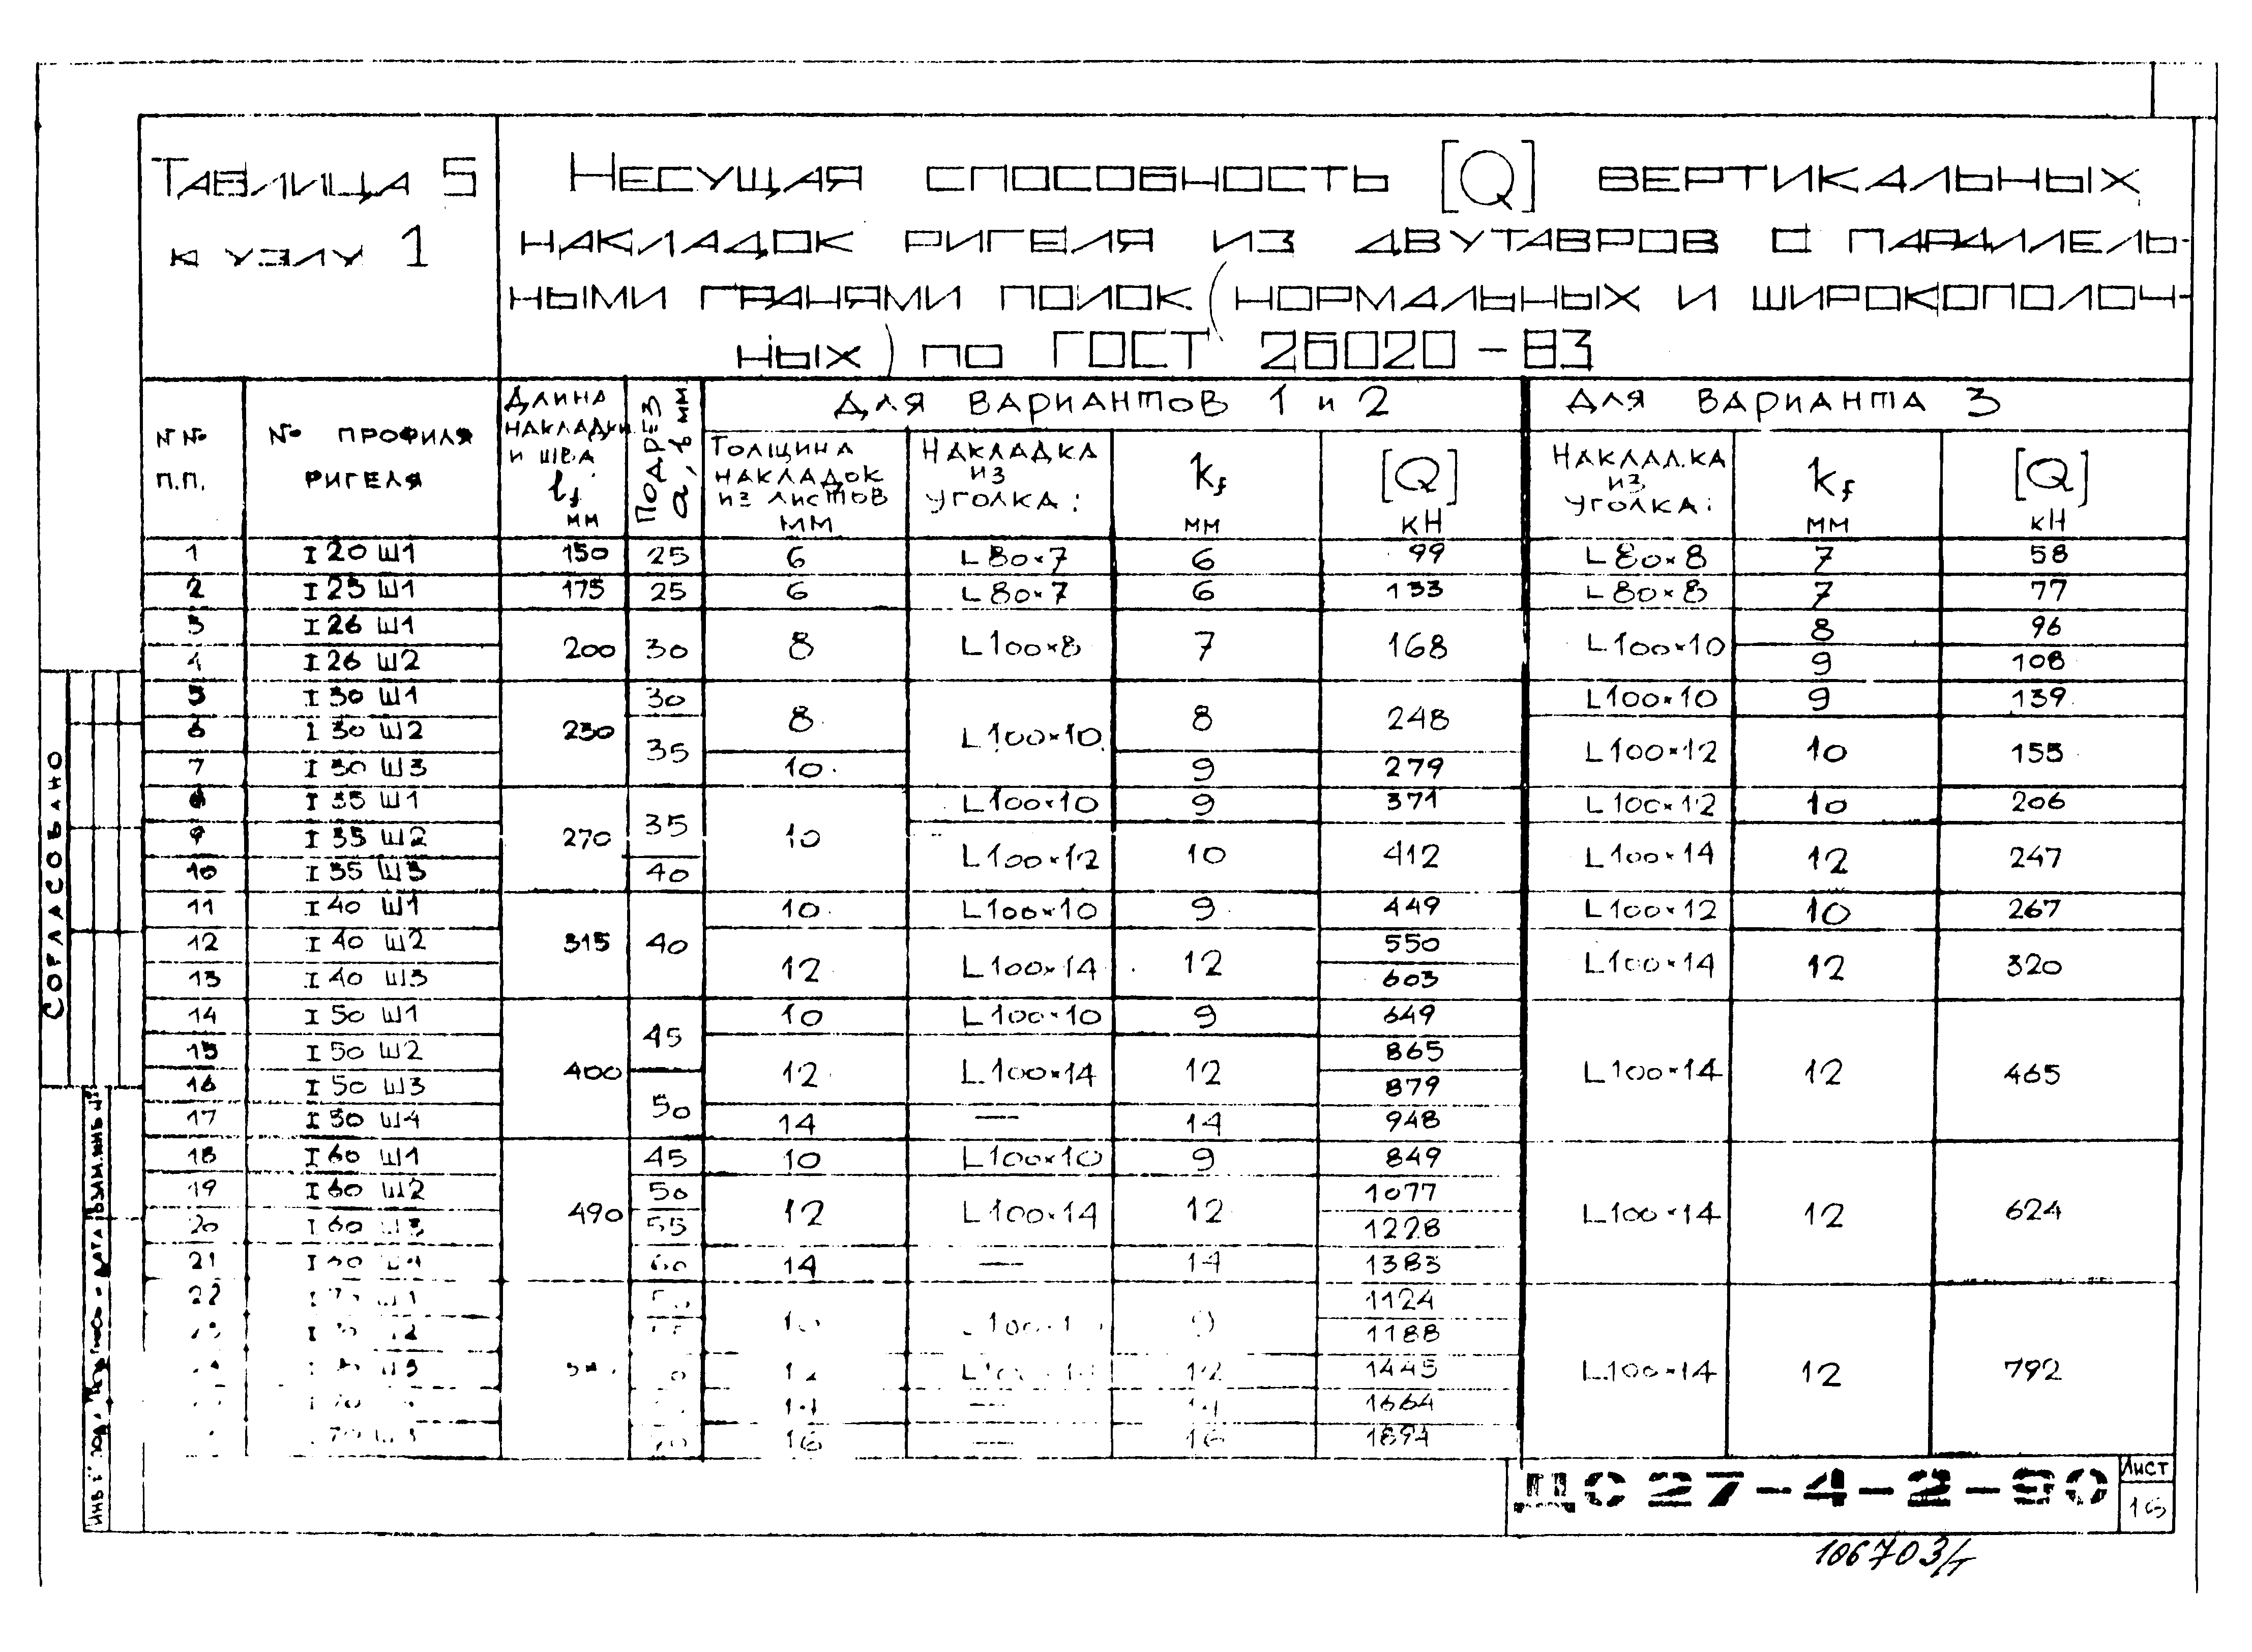 Таблица 5
к узлу 1
Несущая способность [Q] вертикальных
накладок ригеля из двутавров с параллель-
ными гранями полок (нормальных и широкополоч-
ных) по ГОСТ 26020-83
N№ п.п.
№ профиля ригеля
Длина накладки и шва lf мм
Подрез a, в мм
Для вариантов 1 и 2
Для варианта 3
Толщина накладок из листов мм
Накладка из уголка:
kf мм
[Q] кН
Накладка из уголка:
kf мм
[Q] кН
1 I 20 Ш1 150 25 6 L80×7 6 99 L80×8 7 58
2 I 23 Ш1 175 25 6 L80×7 6 133 L80×8 7 77
3 I 26 Ш1 200 30 8 L100×8 7 168 L100×10 8 96
4 I 26 Ш2 9 108
5 I 30 Ш1 230 30 8 L100×10 8 248 L100×10 9 139
6 I 30 Ш2 35 L100×12 10 155
7 I 30 Ш3 10 9 279
8 I 35 Ш1 270 35 10 L100×10 9 371 L100×12 10 206
9 I 35 Ш2 L100×12 10 412 L100×14 12 247
10 I 35 Ш3 40
11 I 40 Ш1 315 40 10 L100×10 9 449 L100×12 10 267
12 I 40 Ш2 12 L100×14 12 550 L100×14 12 320
13 I 40 Ш3 603
14 I 50 Ш1 400 45 10 L100×10 9 649 L100×14 12 465
15 I 50 Ш2 12 L100×14 12 865
16 I 50 Ш3 50 879
17 I 50 Ш4 14 — 14 948
18 I 60 Ш1 490 45 10 L100×10 9 849 L100×14 12 624
19 I 60 Ш2 50 12 L100×14 12 1077
20 I 60 Ш3 55 1228
21 I 60 Ш4 60 14 — 14 1383
22 Ш1 10 9 1124 L100×14 12 792
1188
Ш3 12 12 1445
14 — 14 1664
70 16 — 16 1894
Согласовано
Взам. инв. №
ДС 27-4-2-90
Лист
16
106703/т